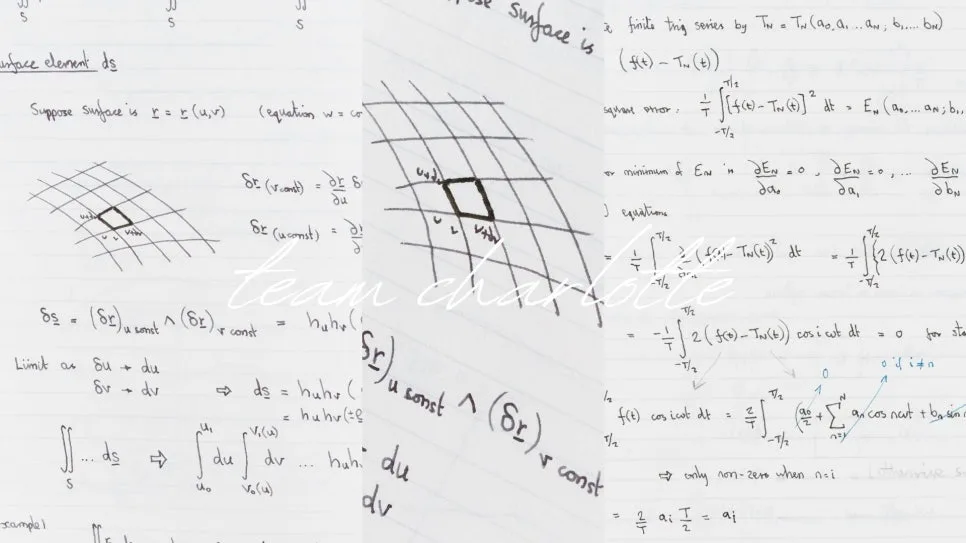 ∬ ∬ ∬
S S S
surface element d<u>s</u>
Suppose surface is <u>r</u> = <u>r</u>(u,v) (equation w = co
δ<u>r</u> (v const) = ∂<u>r</u>/∂u δ
δ<u>r</u> (u const) =
u v
δ<u>s</u> = (δ<u>r</u>)u const ∧ (δ<u>r</u>)v const = huhv (
Limit as δu → du
δv → dv ⇒ d<u>s</u> = huhv (
= huhv (±e
∬S ... d<u>s</u> ⇒ ∫u₀^u₁ du ∫v₀(u)^v₁(u) dv ... huhv
xample)
pose surface is
u v
δ<u>r</u>)u const ∧ (δ<u>r</u>)v const
du
dv
team charlotte
finite trig series by TN = TN(a₀, a₁ ... aN; b₁, ... bN)
(f(t) − TN(t))
square error. 1/T ∫−T/2^T/2 [f(t) − TN(t)]² dt = EN(a₀, ... aN; b₁,
or minimum of EN is ∂EN/∂a₀ = 0, ∂EN/∂a₁ = 0, ... ∂EN/∂bN
) equations
= 1/T ∫−T/2^T/2 (f(t) − TN(t))² dt = 1/T ∫−T/2^T/2 {2(f(t) − TN(t))
= −1/T ∫−T/2^T/2 2(f(t) − TN(t)) cos iωt dt = 0 for
0 0 if i≠n
f(t) cos iωt dt = 2/T ∫−T/2^T/2 (a₀/2 + ∑n=1^N an cos nωt + bn sin n
⇒ only non-zero when n=i
= 2/T ai T/2 = ai